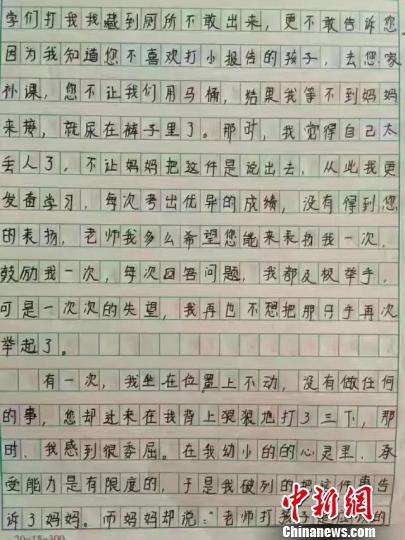 学们打我我藏到厕所不敢出来，更不敢告诉您，
因为我知道您不喜欢打小报告的孩子，去您家
补课，您不让我们用马桶，结果我等不到妈妈
来接，就尿在裤子里了。那时，我觉得自己太
丢人了，不让妈妈把这件是说出去，从此我更
发奋学习，每次考出优异的成绩，没有得到您
的表扬，老师我多么希望您能来表扬我一次，
鼓励我一次，每次回答问题，我都及极举手，
可是一次次的失望，我再也不想把那只手再次
举起了。
有一次，我坐在位置上不动，没有做任何
的事，您却过来在我背上狠狠地打了三下，那
时，我感到很委屈。在我幼小的的心灵里，承
受能力是有限度的，于是我破列的把这件事告
诉了妈妈。而妈妈却说："老师打孩子是
20×15=300
中新网
Chinanews.com